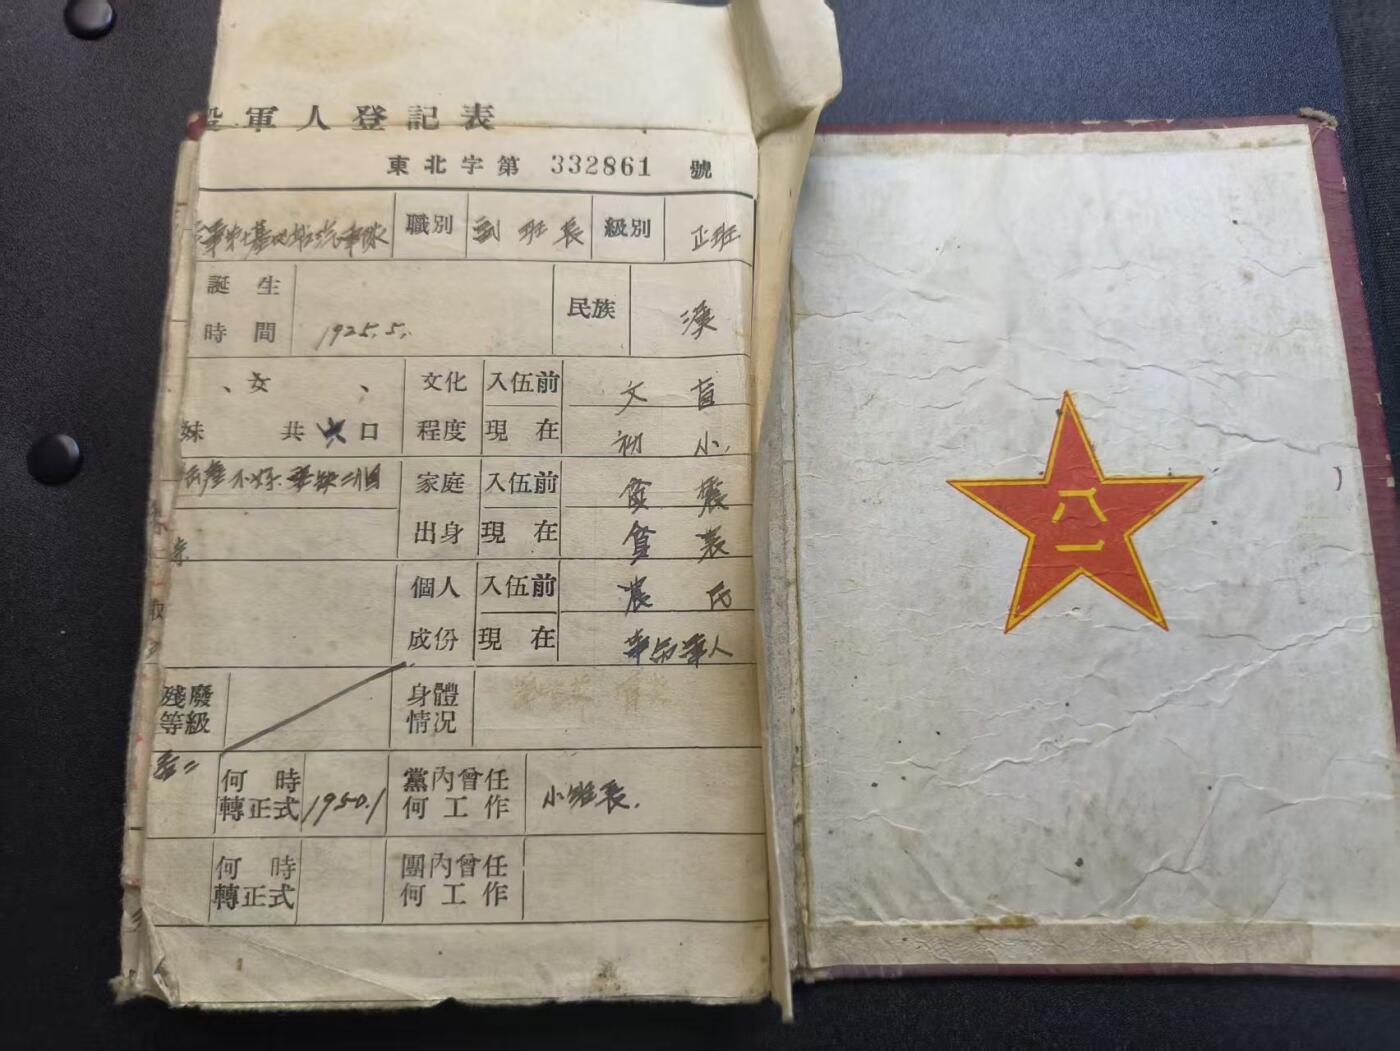 軍人登記表
東北字第 332861 號
職別 副班長 級別 正班
誕生
時間 1925.5. 民族 漢
、女 、 文化 入伍前 文盲
妹 共 口 程度 現在 初小
家庭 入伍前 貧農
出身 現在 貧農
個人 入伍前 農民
成份 現在 革命軍人
殘廢 身體
等級 情况
何時 黨內曾任
轉正式 1950.1 何工作 小班長.
何時 團內曾任
轉正式 何工作
八一